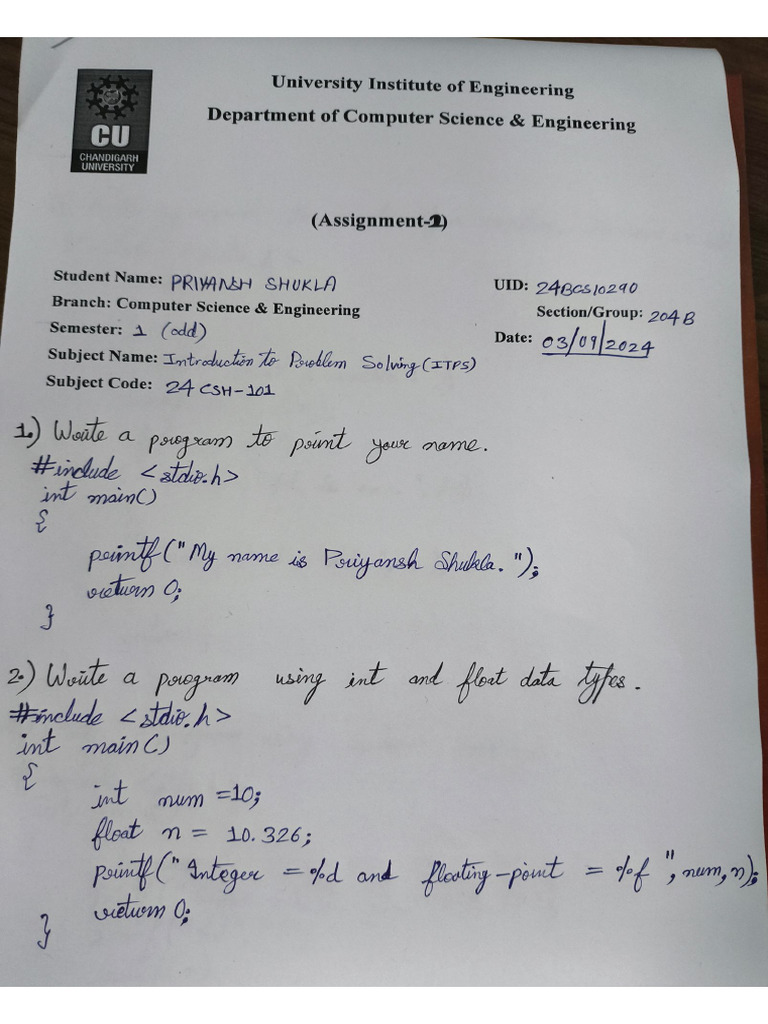 CU
CHANDIGARH
UNIVERSITY
University Institute of Engineering
Department of Computer Science & Engineering
(Assignment-1)
Student Name: PRIYANSH SHUKLA
UID: 24BCS10290
Branch: Computer Science & Engineering
Section/Group: 204B
Semester: 1 (odd)
Date: 03/09/2024
Subject Name: Introduction to Problem Solving (ITPS)
Subject Code: 24 CSH-101
1.) Write a program to print your name.
#include <stdio.h>
int main()
{
printf("My name is Priyansh Shukla.");
return 0;
}
2.) Write a program using int and float data types.
#include <stdio.h>
int main()
{
int num =10;
float n = 10.326;
printf("Integer = %d and floating-point = %f ", num, n);
return 0;
}